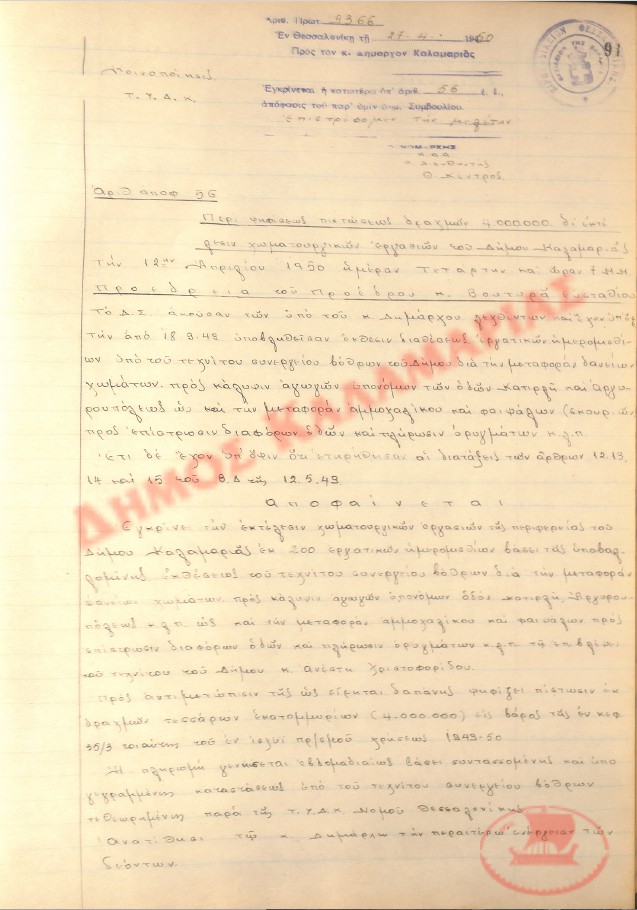 Αριθ. Πρωτ. 9366
Ἐν Θεσσαλονίκῃ τῇ 27-4- 1950
Πρὸς τὸν κ. Δήμαρχον Καλαμαριᾶς
91
Κοινοποίησις
Τ.Υ.Δ.Κ.
Ἐγκρίνεται ἡ κατωτέρω ὑπ' ἀριθ. 56 ἐ. ἔ.
ἀπόφασις τοῦ παρ' ὑμῖν Δημ. Συμβουλίου.
ἐπιστρέφομεν τὴν μελέτην
Ο ΝΟΜΑΡΧΗΣ
κ.α.α.
ὁ Διευθυντὴς
Θ. Κέντρος
Αριθ αποφ 56
Περὶ ψηφίσεως πιστώσεως δραχμῶν 4.000.000 δι' ἐκτέ-
λεσιν χωματουργικῶν ἐργασιῶν τοῦ Δήμου Καλαμαριᾶς
Τὴν 12ην Ἀπριλίου 1950 ἡμέραν Τετάρτην καὶ ὥραν 7 Μ.Μ.
Προεδρεία τοῦ Προέδρου κ. Βουτυρᾶ Εὐσταθίου
Τὸ Δ.Σ. ἀκοῦσαν τῶν ὑπὸ τοῦ κ Δημάρχου λεχθέντων καὶ ἔχον ὑπ' ὄψει
τὴν ἀπὸ 18.9.49 ὑποβληθεῖσαν ἔκθεσιν διαθέσεως ἐργατικῶν ἡμερομισθί-
ων ὑπὸ τοῦ τεχνίτου συνεργείου βόθρων τοῦ Δήμου διὰ τὴν μεταφορὰν δανείων
χωμάτων πρὸς κάλυψιν ἀγωγῶν ὑπονόμων τῶν ὁδῶν Κατιρλῆ καὶ Ἀργυ-
ρουπόλεως ὡς καὶ τὴν μεταφορὰν ἀμμοχαλίκου καὶ φαιψάλων (σκουριῶν)
πρὸς ἐπίστρωσιν διαφόρων ὁδῶν καὶ πλήρωσιν ὀρυγμάτων κ.λ.π.
Ἔτι δὲ ἔχον ὑπ' ὄψιν ὅτι ἐτηρήθησαν αἱ διατάξεις τῶν ἄρθρων 12, 13,
14 καὶ 15 τοῦ Β.Δ τῆς 12.5.49.
Ἀποφαίνεται
Ἐγκρίνει τὴν ἐκτέλεσιν χωματουργικῶν ἐργασιῶν τῆς περιφερείας τοῦ
Δήμου Καλαμαριᾶς ἐκ 200 ἐργατικῶν ἡμερομισθίων βάσει τῆς ὑποβαλ-
λομένης ἐκθέσεως τοῦ τεχνίτου συνεργείου βόθρων διὰ τὴν μεταφορὰν
δανείων χωμάτων πρὸς κάλυψιν ἀγωγῶν ὑπονόμων ὁδῶν Κατιρλῆ, Ἀργυρου-
πόλεως κ.λ.π ὡς καὶ τὴν μεταφορὰν ἀμμοχαλίκου καὶ φαιψάλων πρὸς
ἐπίστρωσιν διαφόρων ὁδῶν καὶ πλήρωσιν ὀρυγμάτων κ.λ.π τῇ ἐπιβλέψει
τοῦ τεχνίτου τοῦ Δήμου κ. Ἀνέστη Χριστοφορίδου.
Πρὸς ἀντιμετώπισιν τῆς ὡς εἴρηται δαπάνης ψηφίζει πίστωσιν ἐκ
δραχμῶν τεσσάρων ἑκατομμυρίων (4.000.000) εἰς βάρος τῆς ἐν κεφ
35/3 τοιαύτης τοῦ ἐν ἰσχύι πρ/σμοῦ χρήσεως 1949-50
Ἡ πληρωμὴ γενήσεται ἑβδομαδιαίως βάσει συντασσομένης καὶ ὑπο
γεγραμμένης καταστάσεως ὑπὸ τοῦ τεχνίτου συνεργείου βόθρων
τεθεωρημένης παρὰ τῆς Τ.Υ.Δ.Κ Νομοῦ Θεσσαλονίκης
Ἀνατίθησι τῷ κ. Δημάρχῳ τὴν περαιτέρω ἐνέργειαν τῶν
δεόντων.
ΔΗΜΟΣ ΚΑΛΑΜΑΡΙΑΣ